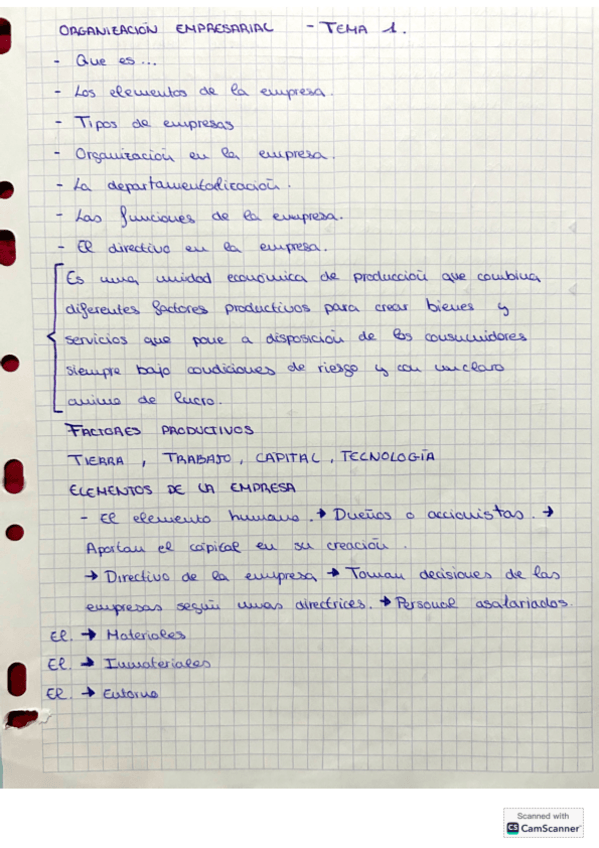 ORGANIZACIÓN EMPRESARIAL - TEMA 1.
- Que es...
- Los elementos de la empresa.
- Tipos de empresas
- Organización en la empresa.
- La departamentalización.
- Las funciones de la empresa.
- El directivo en la empresa.
Es una unidad económica de producción que combina
diferentes factores productivos para crear bienes y
servicios que pone a disposición de los consumidores
siempre bajo condiciones de riesgo y con un claro
animo de lucro.
FACTORES PRODUCTIVOS
TIERRA, TRABAJO, CAPITAL, TECNOLOGÍA
ELEMENTOS DE LA EMPRESA
- El elemento humano. → Dueños o accionistas. →
Aportan el cápital en su creación.
→ Directivo de la empresa → Toman decisiones de las
empresas según unas directrices. → Personal asalariados.
El. → Materiales
El. → Inmateriales
El. → Entorno
Scanned with
CS CamScanner